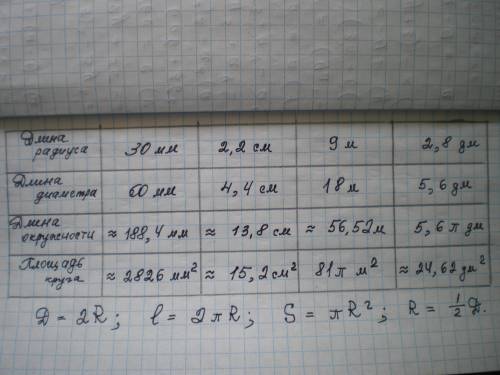 Длина
радиуса 30 мм 2,2 см 9 м 2,8 дм
Длина
диаметра 60 мм 4,4 см 18 м 5,6 дм
Длина
окружности ≈ 188,4 мм ≈ 13,8 см ≈ 56,52 м 5,6 π дм
Площадь
круга ≈ 2826 мм² ≈ 15,2 см² 81π м² ≈ 24,62 дм²
D = 2R; l = 2πR; S = πR²; R = ½ D.